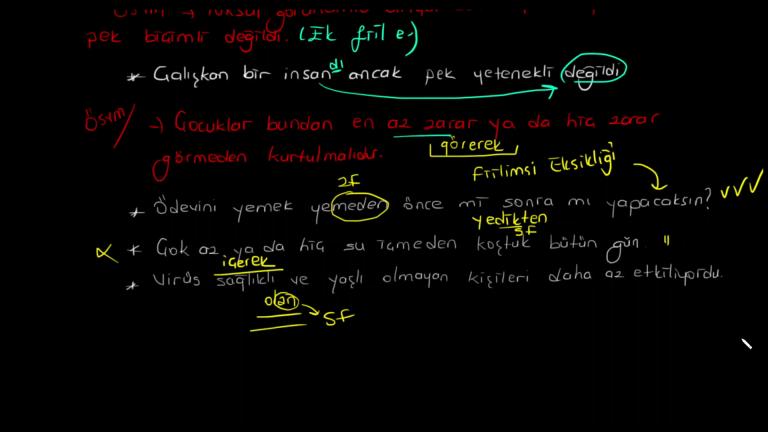 pek biçimli değildi. (Ek fiil e.)
* Çalışkan bir insandı ancak pek yetenekli değildi
Ösym/ → Çocuklar bundan en az zarar ya da hiç zarar
görerek
görmeden kurtulmalıdır.
Fiilimsi Eksikliği
ZF
* Ödevini yemek yemeden önce mi sonra mı yapacaksın? ✓✓✓
yedikten
SF
∝ * Çok az ya da hiç su içmeden koştuk bütün gün. "
içerek
* Virüs sağlıklı ve yaşlı olmayan kişileri daha az etkiliyordu.
olan → SF